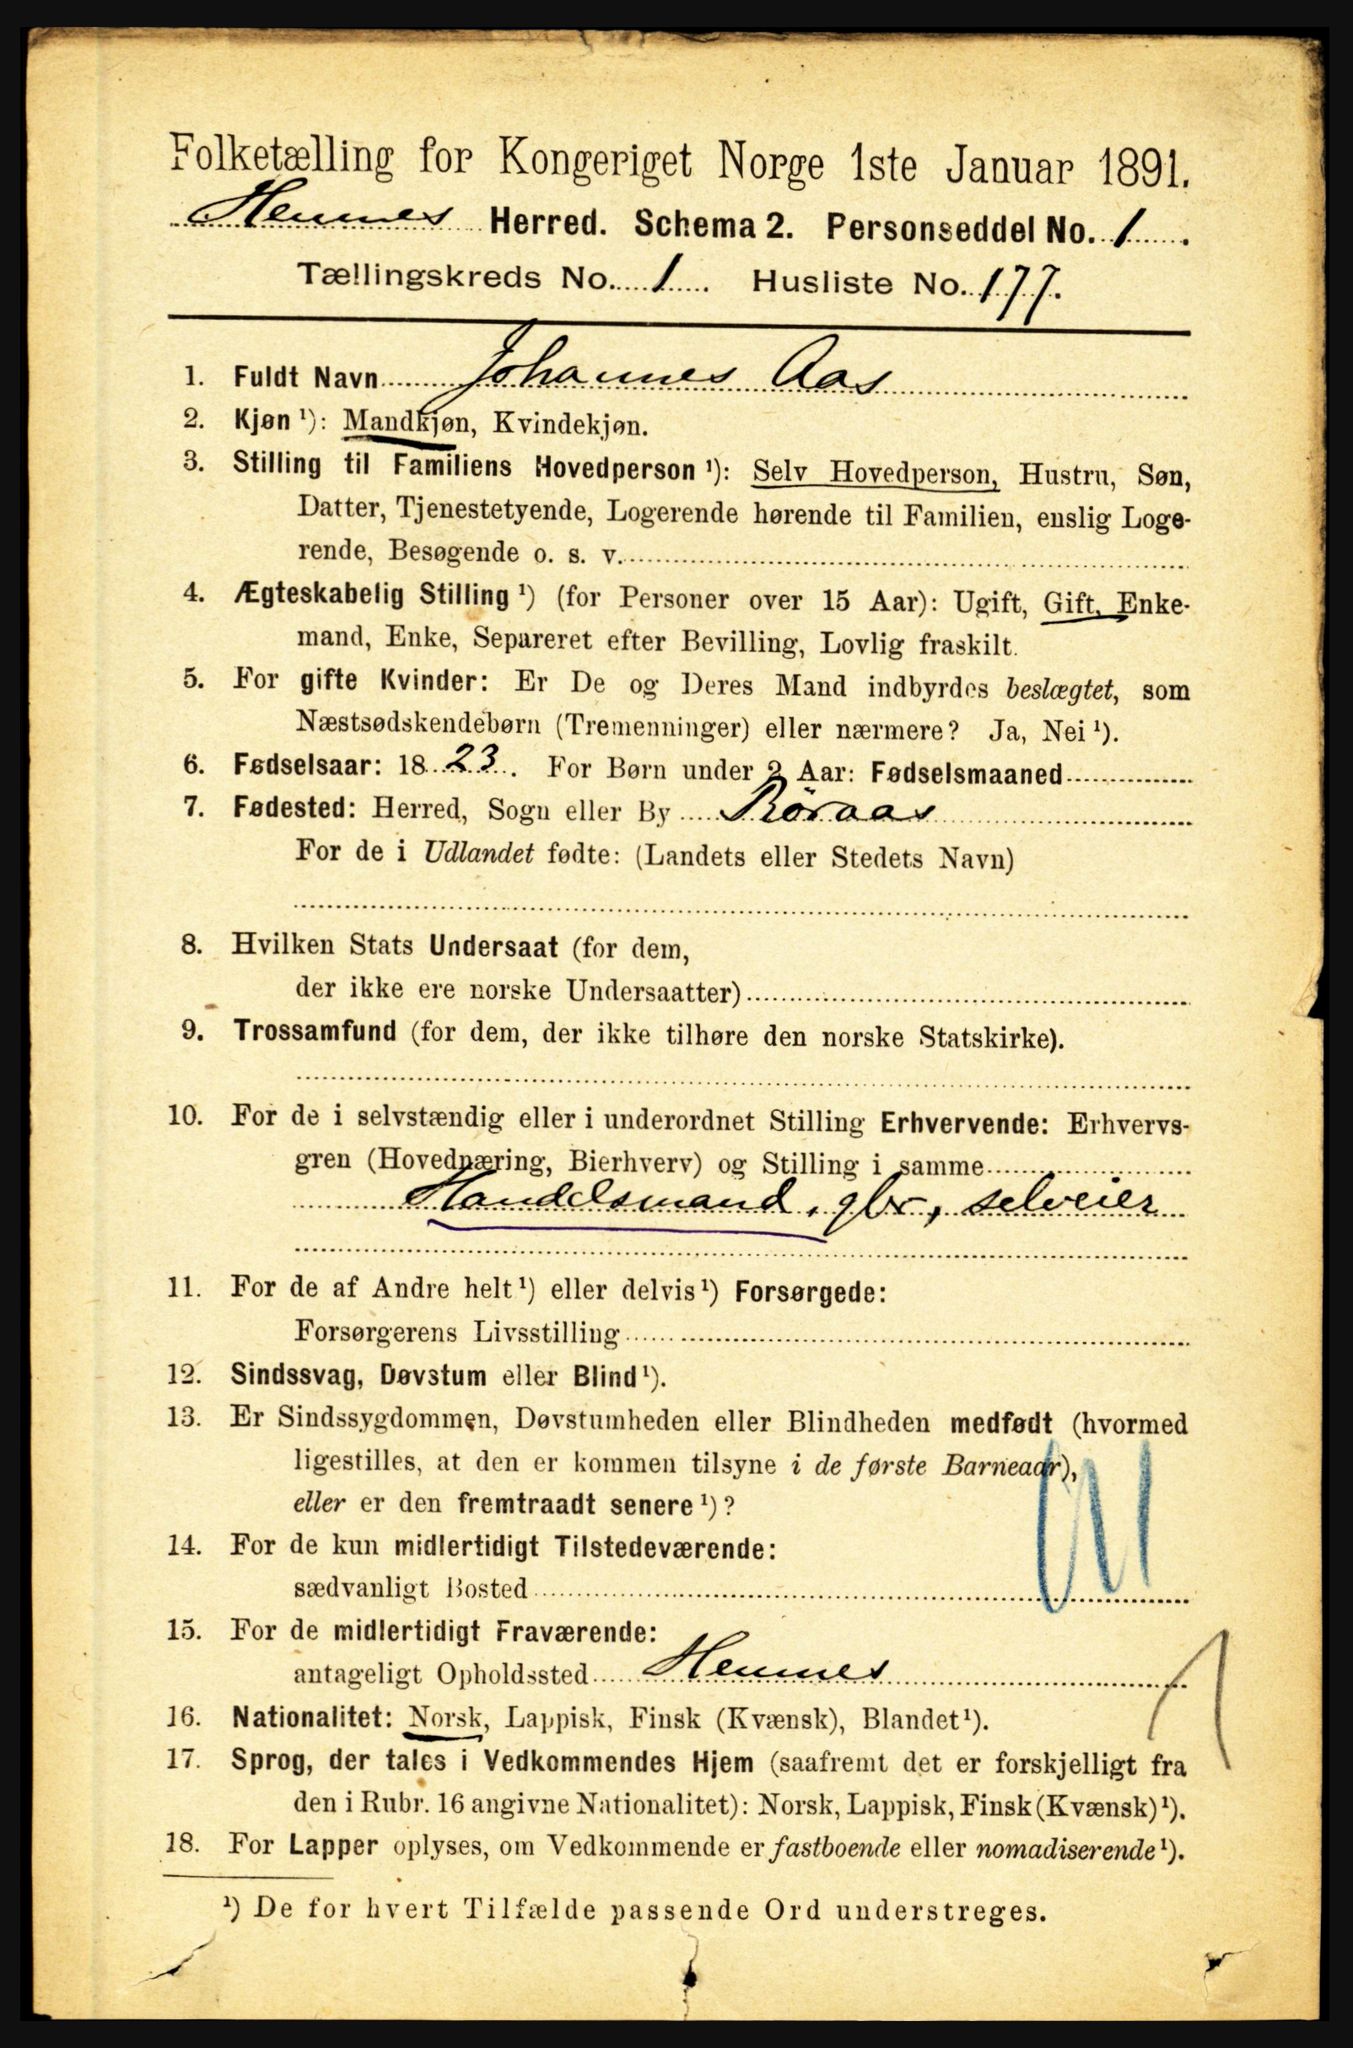 Folketælling for Kongeriget Norge 1ste Januar 1891.
Hemnes Herred. Schema 2. Personseddel No. 1.
Tællingskreds No. 1. Husliste No. 177.
1. Fuldt Navn Johannes Aas
2. Kjøn ¹): Mandkjøn, Kvindekjøn.
3. Stilling til Familiens Hovedperson ¹): Selv Hovedperson, Hustru, Søn,
Datter, Tjenestetyende, Logerende hørende til Familien, enslig Loge-
rende, Besøgende o. s. v.
4. Ægteskabelig Stilling ¹) (for Personer over 15 Aar): Ugift, Gift, Enke-
mand, Enke, Separeret efter Bevilling, Lovlig fraskilt.
5. For gifte Kvinder: Er De og Deres Mand indbyrdes beslægtet, som
Næstsødskendebørn (Tremenninger) eller nærmere? Ja, Nei ¹).
6. Fødselsaar: 1823. For Børn under 2 Aar: Fødselsmaaned
7. Fødested: Herred, Sogn eller By Röraas
For de i Udlandet fødte: (Landets eller Stedets Navn)
8. Hvilken Stats Undersaat (for dem,
der ikke ere norske Undersaatter)
9. Trossamfund (for dem, der ikke tilhøre den norske Statskirke).
10. For de i selvstændig eller i underordnet Stilling Erhvervende: Erhvervs-
gren (Hovednæring, Bierhverv) og Stilling i samme
Handelsmand, gbr, selveier
11. For de af Andre helt ¹) eller delvis ¹) Forsørgede:
Forsørgerens Livsstilling
12. Sindssvag, Døvstum eller Blind ¹).
13. Er Sindssygdommen, Døvstumheden eller Blindheden medfødt (hvormed
ligestilles, at den er kommen tilsyne i de første Barneaar),
eller er den fremtraadt senere ¹)?
14. For de kun midlertidigt Tilstedeværende:
sædvanligt Bosted
15. For de midlertidigt Fraværende:
antageligt Opholdssted Hemnes
16. Nationalitet: Norsk, Lappisk, Finsk (Kvænsk), Blandet ¹).
17. Sprog, der tales i Vedkommendes Hjem (saafremt det er forskjelligt fra
den i Rubr. 16 angivne Nationalitet): Norsk, Lappisk, Finsk (Kvænsk) ¹).
18. For Lapper oplyses, om Vedkommende er fastboende eller nomadiserende ¹).
¹) De for hvert Tilfælde passende Ord understreges.